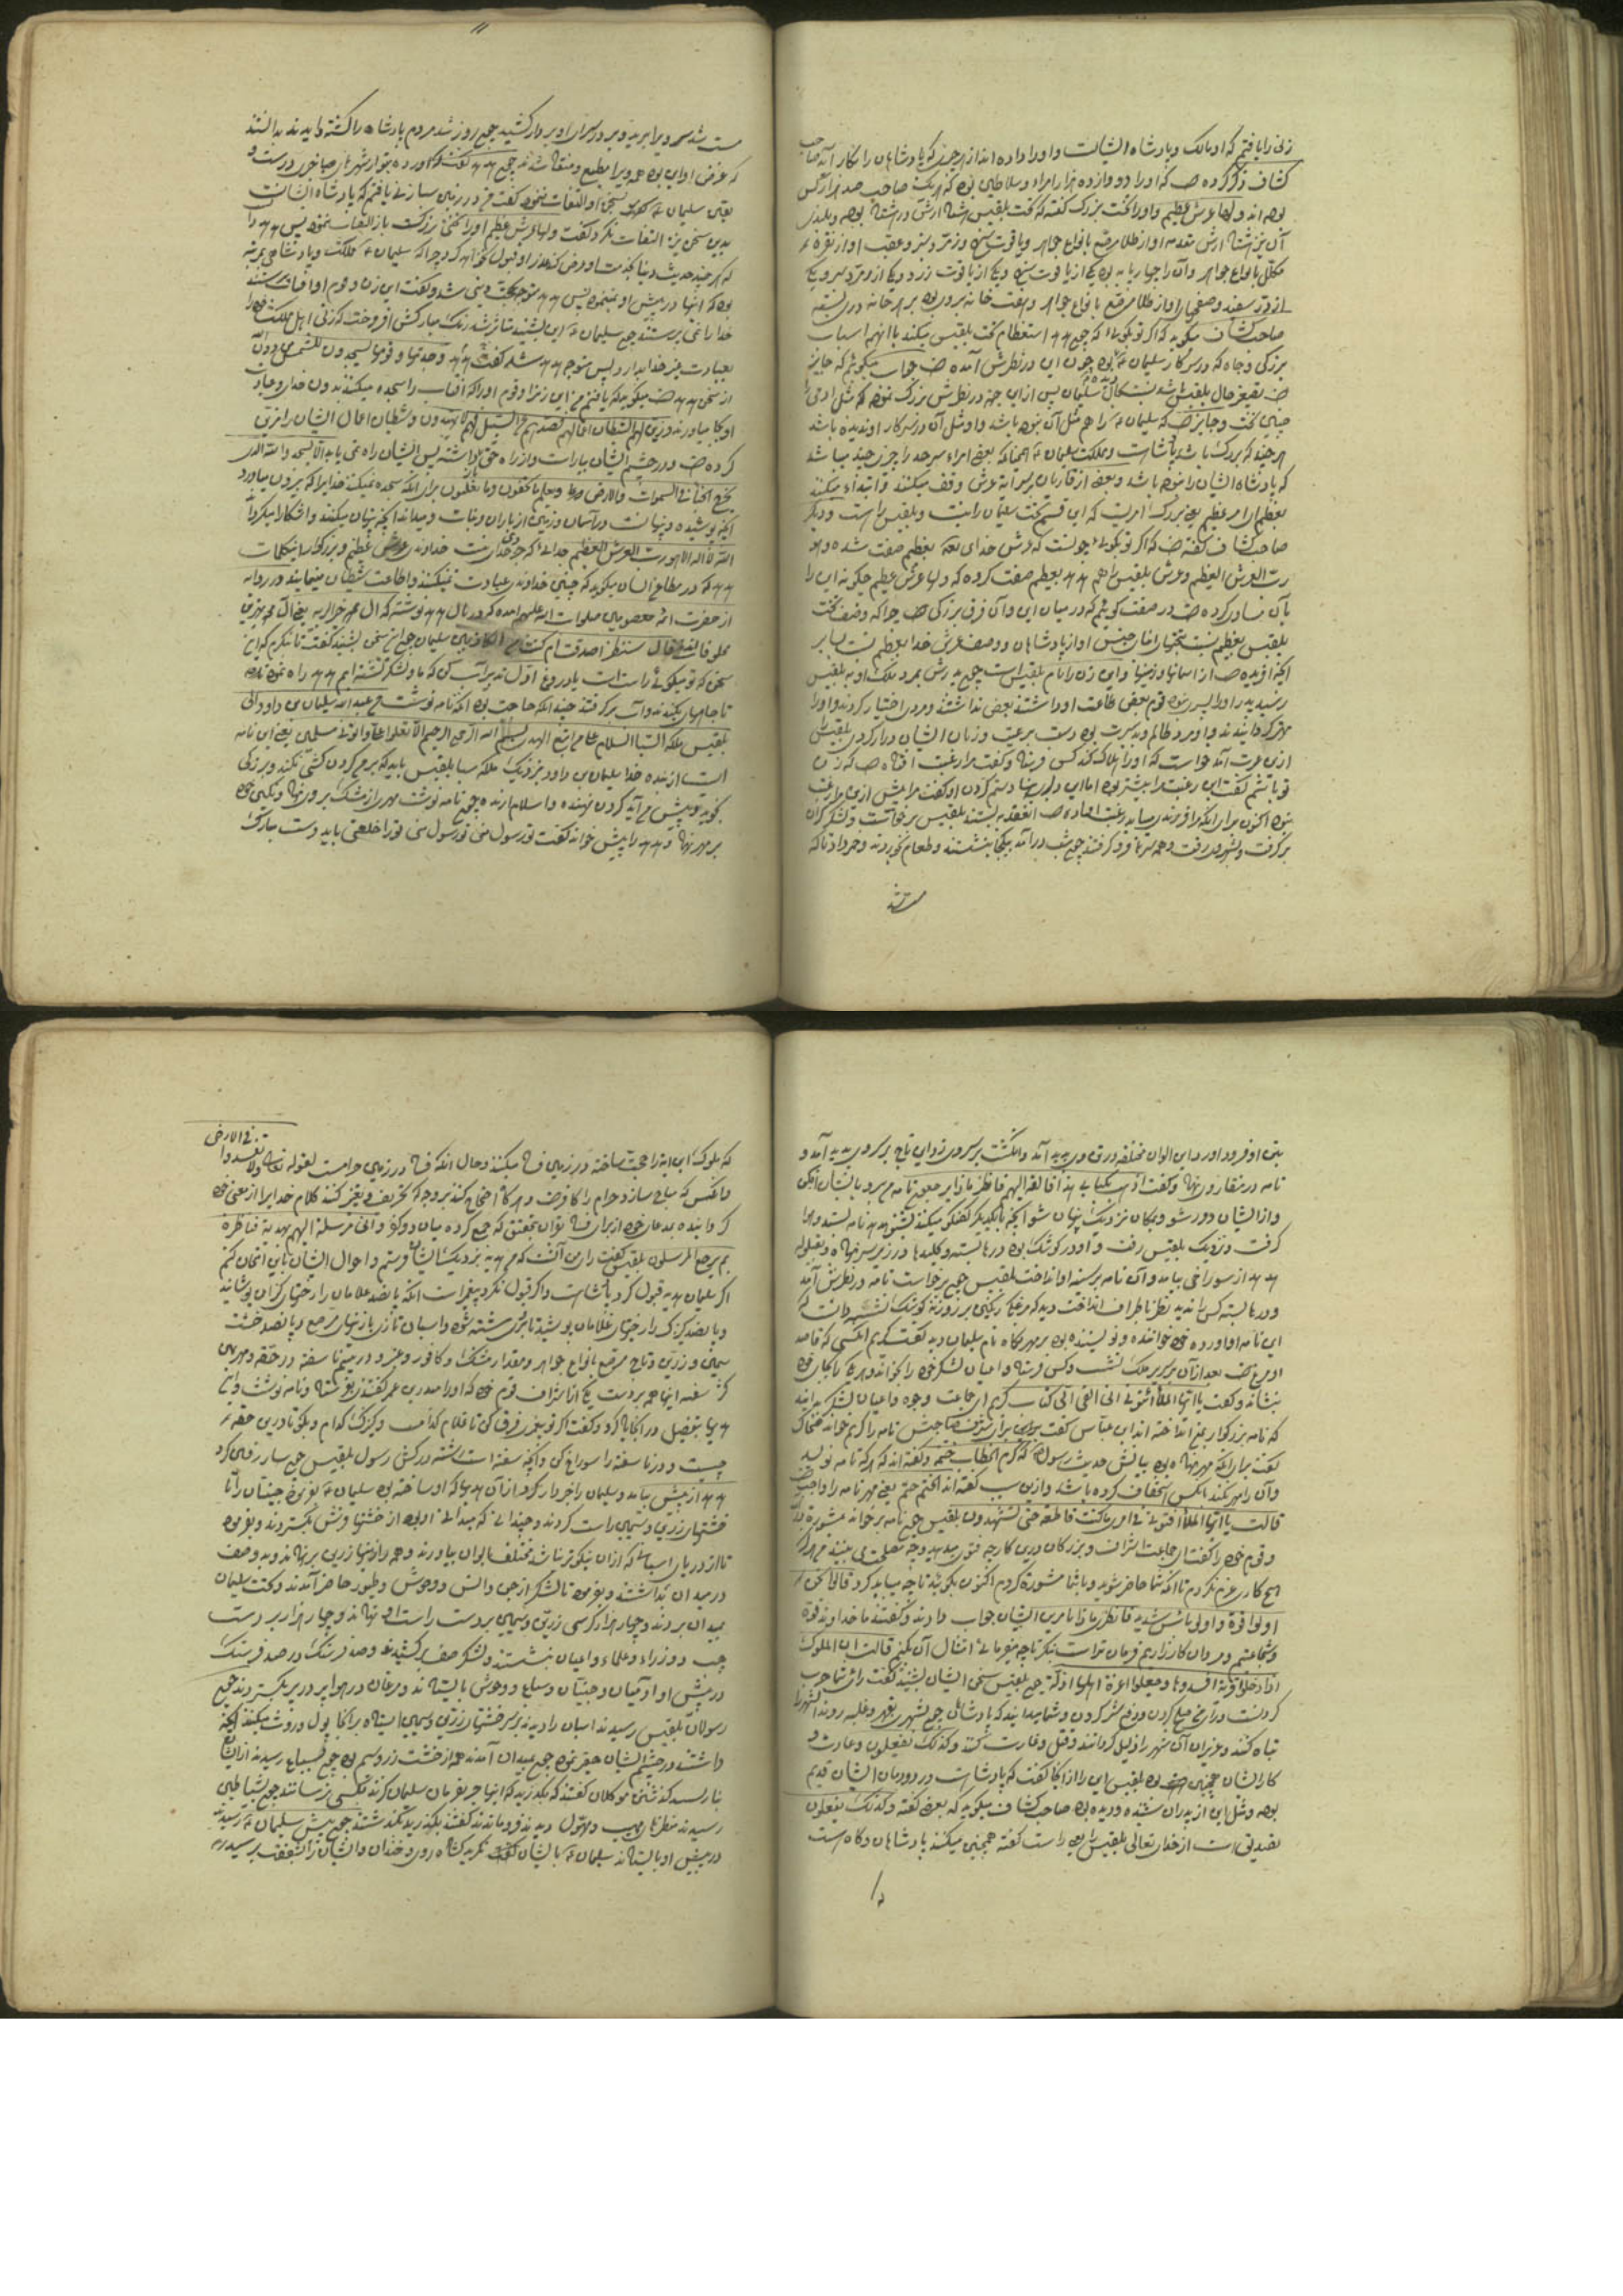 زنی را یافتم که او مالک و پادشاه ایشانست و او را داده اند از هر چیزی که پادشاهان را بکار آید صاحب
کشاف ذکر کرده که او را دوازده هزار امراء و سلاطین بوده که هر یک صاحب صد هزار کس
بوده اند ولها عرش عظیم و او را تخت بزرگ گفته که تخت بلقیس هشتاد ارش در هشتاد بوده و بلندی
آن نیز هشتاد ارش مقدمه او از طلا مرصع بانواع جواهر و یاقوت سرخ و زمرد سبز و عقب او از نقره
مکلل بانواع جواهر و آن را چهار پایه بوده یکی از یاقوت سرخ و یکی از یاقوت زرد و یکی از زمرد سبز و یکی
از در سفید و صفحهای او از طلا مرصع بانواع جواهر و هفت خانه برو بوده بر هر خانه دری بسته
صاحب کشاف میگوید که اگر تو گوئی که چون هدهد استعظام تخت بلقیس میکند با آنهمه اسباب
بزرگی و جاه که در سرکار سلیمان بوده چون این در نظرش آمده جواب میگوئیم که جایز
پس از این جهة در نظرش بزرگ نموده که مثل او را
چنین تخت و جایز که سلیمان را هم مثل آن نبوده باشد و او مثل آن در سرکار او ندیده باشد
هر چند که بزرگ باشد پادشاهست و مملکت سلیمان همچنانکه بعضی امراء سرحد را چیزی چند میباشد
که پادشاه ایشان را نبوده باشد و بعضی از قاریان بر سر آیه عرش وقف میکنند و ابتداء میکنند
بعظیم ای امر عظیم یعنی بزرگ امریست که این قسم تخت سلیمان را نیست و بلقیس را هست و دیگر
صاحب کشاف گفته که اگر تو گوئی چونست که عرش خدای بعظیم صفت شده و هو
رب العرش العظیم و عرش بلقیس را هم هدهد بعظیم صفت کرده که ولها عرش عظیم چگونه این را
بآن مساوی کرده در صفت گوئیم که در میان این و آن فرق بزرگی چرا که وصف تخت
بلقیس بعظیم نسبت بتختهای ابنای جنس او از پادشاهان و وصف عرش خدا بعظیم نسبت بسایر
آنچه آفریده از آسمانها و زمینها و این زن را نام بلقیس است چون پدرش بمرد ملک او به بلقیس
رسید پدر او را پسر نبوده قوم بعضی طاعت او داشتند بعضی نداشتند و مردی اختیار کردند و او را
مهتر گردانیدند و او مرد ظالم و بد سیرت بود دست برعیت و زنان ایشان دراز کردی بلقیس را
ازین غیرت آمد خواست که او را هلاک کند کس فرستاد و گفت مرا رغبت افتاده که زن
تو باشم گفت این رغبت مرا بیشتر بوده اما این دلیری
بوده اکنون برای آنکه مرا فرزندی بیاید رغبت افتاده عقد بستند بلقیس برخاست و لشکر گران
برگرفت و بشهر وی رفت و همه سرها فرو گرفتند چون شب درآمد یکجا بنشستند و طعام خوردند و خمر داد تا که
مست شد
مست شد سر ویرا برید و بر در سرای او بر دار کشید چون روز شد مردم پادشاه را کشته دیدند بدانستند
که غرض او این بوده همه ویرا مطیع و منقاد شدند چون هدهد گفت که آورده بتو از شهر سبا خبری درست و
یقین سلیمان بسخن او التفات ننمود گفت من در زمین سبا زنی یافتم که پادشاه ایشانست
بدین سخن نیز التفات نکرد گفت ولها عرش عظیم او را تختی بزرگست باز التفات ننمود پس هدهد دانست
که هر چند حدیث دنیا کند و عرض کند از او قبول نخواهد کرد چرا که سلیمان مملکت و پادشاهی بمرتبه
بود که اینها در پیش او ننمودی پس هدهد متوجه بحث دینی شد و گفت این زن و قوم او آفتاب پرستند
خدا را نمی پرستند چون سلیمان این بشنید متأثر شد رنگ مبارکش افروخت که زنی اهل مملکت خود را
بعبادت غیر خدا بدارد پس متوجه هدهد شد گفت وجدتها و قومها یسجدون للشمس من دون الله
از سخن هدهد میگوید که یافتم من این زن را و قوم او را که آفتاب را سجده میکنند بدون خدای و عبادت
او بجا میاورند و زین لهم الشیطان اعمالهم فصدهم عن السبیل فهم لا یهتدون و شیطان اعمال ایشان را مزین
کرده و در چشم ایشان بیاراست و از راه حق بازداشته پس ایشان راه نمی یابند الا یسجدوا لله الذی
یخرج الخبأ فی السموات والارض ویعلم ما تخفون وما تعلنون برای آنکه سجده نمیکنند خدایرا که بیرون میاورد
آنچه پوشیده و پنهانست در آسمان و زمین از باران و نبات و میداند آنچه پنهان میکنند و آشکارا میکردانند
الله لا اله الا هو رب العرش العظیم خدائی که جز خدائی نیست خداوند عرش عظیم و بزرگوار
هدهد که در مطلع انسان میگوید که چنین خداوندی عبادت نمیکنند و اطاعت شیطان مینمایند و در روایه
از حضرت ائمه معصومین صلوات الله علیهم آمده که در بال هدهد نوشته که آل محمد خیر البریه
قال سننظر اصدقت ام کنت من الکاذبین سلیمان چون این سخن بشنید گفت تا بنگرم که این
سخن که تو میگوئی راست است یا دروغ اول تدبیر آب کن که ما و لشکر تشنه ایم هدهد راه نمود
تا چاهها بکندند و آب برگرفتند چندانکه حاجت بود آنگه نامه نوشت من عبد الله سلیمان بن داود الی
بلقیس ملکة السبا السلام علی من اتبع الهدی بسم الله الرحمن الرحیم الا تعلوا علی و اتونی مسلمین یعنی این نامه
ایست از بنده خدا سلیمان بن داود بنزدیک ملکه سبا بلقیس باید که بر من گردن کشی نکند و بزرگی
نجوید و پیش من آید گردن نهنده و اسلام آرنده چون نامه نوشت مهری از مشک برو نهاد و نگین خود
بر مهر نهاد و هدهد را پیش خواند گفت تو رسول منی تو رسول منی ترا خلعتی باید دست مبارک
بتن او فرود آورد این الوان مختلفه در تن وی پدید آمد و انگشت بر سر وی زد این تاج بر سر وی پدید آمد و
نامه در منقار وی نهاد و گفت اذهب بکتابی هذا فالقه الیهم فانظر ماذا یرجعون نامه من ببر و بایشان افکن
و از ایشان دور شو و بمکان نزدیک پنهان شو آنچه با یکدیگر گفتگو میکنند بشنو هدهد نامه بستد و هوا
گرفت و نزدیک بلقیس رفت و او در کوشک بوده درها بسته و کلیدها در زیر سر نهاده و بقیلوله
هدهد از سوراخی بیامد و آن نامه بر سینه او انداخت بلقیس چون برخاست نامه در نظرش آمد
و درها بسته کس را ندید نظر باطراف انداخت دید که مرغکی رنگین بر روزنه کوشک نشسته دانست که
این نامه او آورده خود خواننده و نویسنده بود بر مهر نگاه نام سلیمان دید گفت کریم کسی که قاصد
او مرغ بعد از آن بر سریر ملک نشست و کس فرستاد و اعیان لشکر خود را بخواند و هر یک بجای خود
بنشاند و گفت یا ایها الملأ انی القی الی کتاب کریم ای جماعت وجوه و اعیان لشکر بدانید
که نامه بزرگوار بمن انداخته اند ابن عباس گفت برای شرف صاحبش نامه را کریم خواند ضحاک
گفت برای آنکه مهر نهاده بود بیانش حدیث رسول که کرم الکتاب ختمه و گفته اند که هر که نامه نویسد
و آن را مهر نکند آنکس استخفاف کرده باشد و ازین سبب گفته اند الختم حتم یعنی مهر نامه را واجب
قالت یا ایها الملأ افتونی فی امری ما کنت قاطعة حتی تشهدون بلقیس چون نامه برخواند مشورة کرد
و قوم خود را گفت ای جماعت اشراف و بزرگان درین کار چه فتوی میدهید و چه مصلحت می بینید من هرگز
هیچ کاری عزم نکردم تا آنکه شما حاضر شوید و با شما مشورة کردم اکنون بگوئید تا چه میباید کرد قالوا نحن
اولوا قوة و اولو بأس شدید فانظری ماذا تأمرین ایشان جواب دادند و گفتند ما خداوند قوة
و شجاعتیم و مردان کارزاریم فرمان تراست بنگر تا چه فرمائی امتثال آن بکنیم قالت ان الملوک
اذا دخلوا قریة افسدوها و جعلوا اعزة اهلها اذلة چون بلقیس سخن ایشان بشنید گفت رای شما حرب
کردنست و رای من صلح کردن و دفع شر کردن و شما میدانید که پادشاهان چون بشهری بقهر و غلبه روند آن شهر را
تباه کنند و عزیزان آن شهر را ذلیل گردانند و قتل و غارت کنند و کذلک یفعلون و عادت و
کار ایشان همچنین بود بلقیس این را از آنجا گفت که پادشاهی در دودمان ایشان قدیم
بوده و مثل این از پدران شنیده و دیده بود صاحب کشاف میگوید که بعضی گفته و کذلک یفعلون
تصدیق است از خدای تعالی بلقیس را یعنی راست گفته همچنین میکنند پادشاهان و گاه هست
که ملوک این آیه را حجت ساخته در زمین فساد میکنند و حال آنکه فساد در زمین حرامست لقوله تعالی ولا تفسدوا
فی الارض
و آنکس که مباح سازد حرام را کافر و هرگاه احتجاج کند بر وجه که تحریف و تغییر کنند کلام خدایرا از معنی خود
گرداننده بمدعای خود از برای فساد بتحقیق که جمع کرده میان دو کفر و انی مرسلة الیهم بهدیة فناظرة
بم یرجع المرسلون بلقیس گفت رای من آنست که من هدیه بنزدیک ایشان فرستم و احوال ایشان باین امتحان کنم
اگر سلیمان هدیه قبول کرد پادشاهست و اگر قبول نکرد پیغمبر است آنگه پانصد غلامان را رختهای کنیزان پوشانید
و پانصد کنیزک را رختهای غلامان پوشید تا مشتبه شود و اسبان تازی با زینهای مرصع و پانصد خشت
سیمین و زرین و تاج مرصع بانواع جواهر و مقدار مشک و کافور و عنبر و در یتیم ناسفته در حقه و مهره
کژ سفته اینها همه بدست یکی از اشراف قوم خود که او را منذر بن عمر گفتند بفرستاد و نامه نوشت و این
هدیها بتفصیل در آنجا یاد کرد و گفت اگر تو پیغمبری فرق کن تا غلام کدامست و کنیزک کدام و بگو تا درین حقه
چیست و در ناسفته را سوراخ کن و آنچه سفته است رشته در کش رسول بلقیس چون ساز رفتن کرد
هدهد از پیش بیامد و سلیمان را خبردار کرد از آن هدیها که او ساخته بود سلیمان بفرمود جنیان را تا
خشتهای زرین و سیمین راست کردند و چندانی که میدانی او بود از خشتها فرش بگسترند و بفرمود
تا از دریای اسبانی که از آن نیکوتر نباشد مختلف الوان بیاورند و همه را زینهای زرین برنهادند و بدو صف
در میدان بداشتند و بفرمود تا لشکر از جن و انس و وحوش و طیور حاضر آمدند و تخت سلیمان
بمیدان بردند و چهار هزار کرسی زرین و سیمین بر دست راست او نهادند و چهار هزار بر دست
چپ و وزراء و علماء و اعیان بنشستند و لشکر صف برکشیدند و صد فرسنگ در صد فرسنگ
در پیش او آدمیان و جنیان و سباع و وحوش بایستادند و مرغان در هوا پر در پر بگسترند چون
رسولان بلقیس رسیدند اسبان را دیدند بر سر خشتهای زرین و سیمین ایستاده برانجا بول و روث میکنند آنچه
داشتند در چشم ایشان حقیر نمود چون بمیدان آمدند همه از خشت زر و سیم بود چون بسباع رسیدند از ایشان
بترسیدند گذشتن موکلان گفتند که بگذرید که اینها جز بفرمان سلیمان گزند بکسی نرسانند چون بشیاطین
رسیدند منظرهای مهیب و مهول دیدند فرو ماندند گفتند بگذرید بگذشتند چون پیش سلیمان رسیدند
در پیش او بایستادند سلیمان بایشان نگریست نگاه روی خندان و ایشان را بتفقد بپرسید